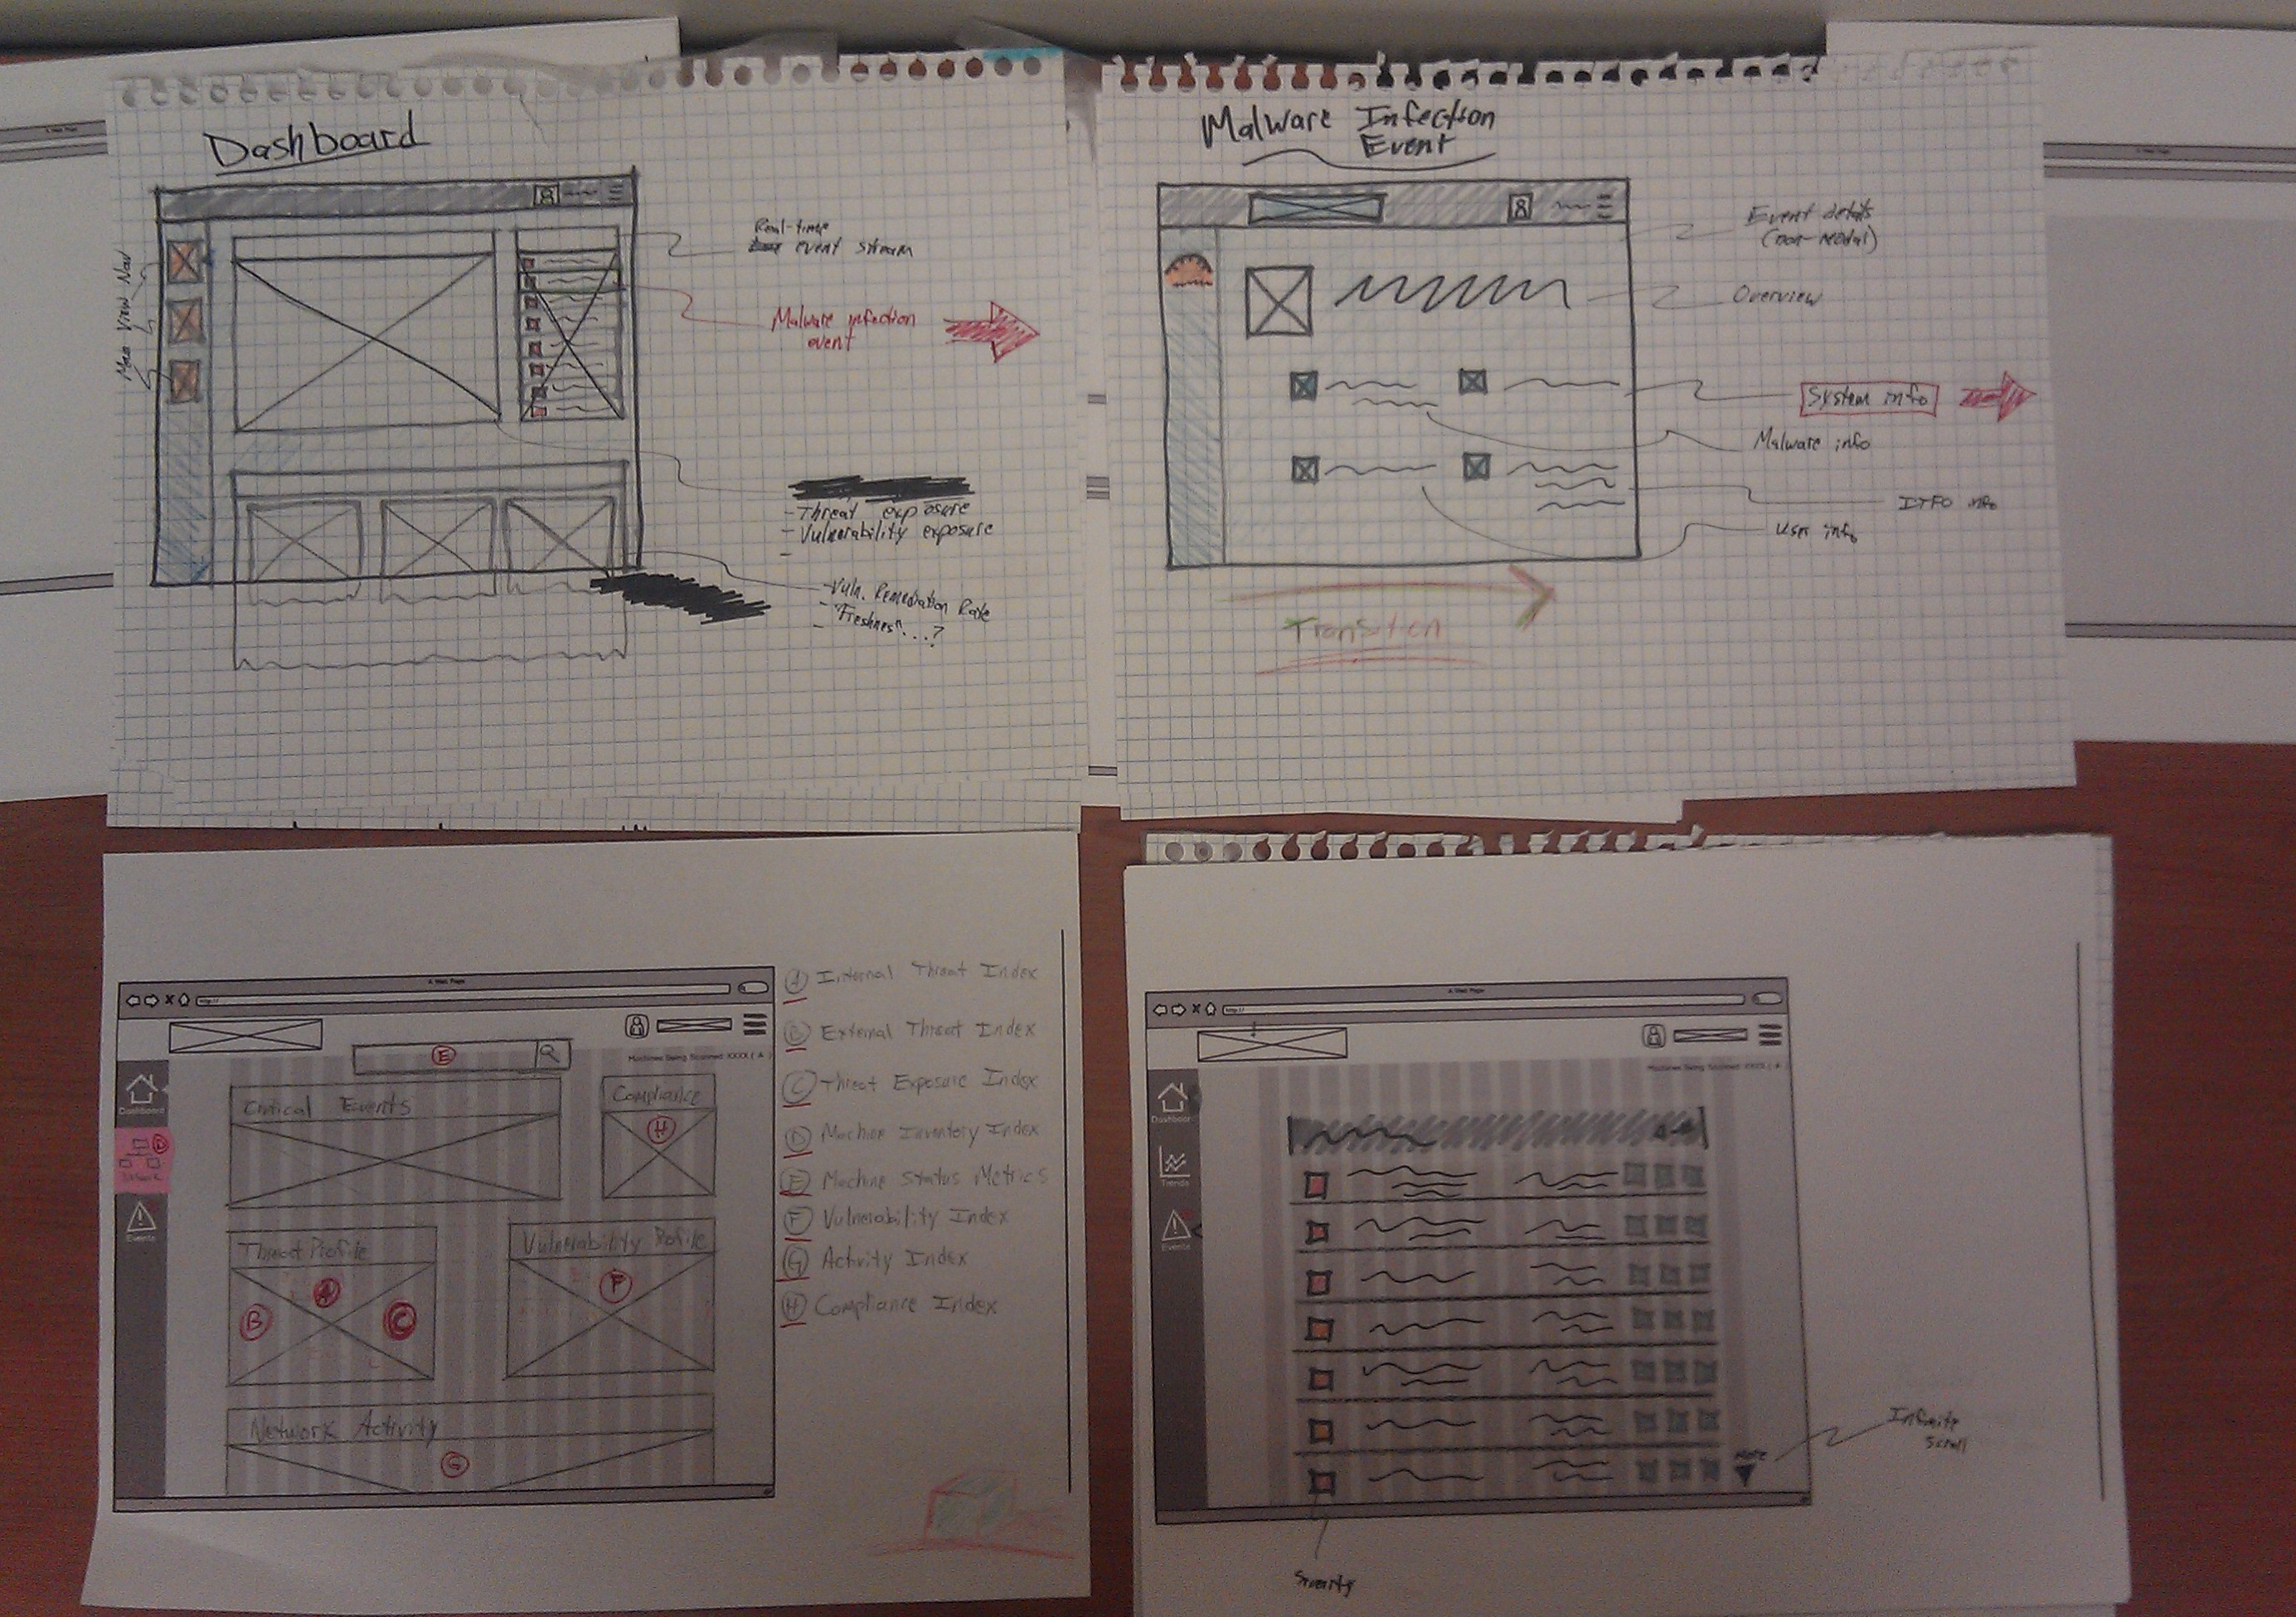 Dashboard
Main View Nav
Real-time
event stream
Malware infection
event
-Threat exposure
-Vulnerability exposure
-
-Vuln. Remediation Rate
-"Freshness"...?
-
Malware Infection
Event
Event details
(non-modal)
Overview
System info
Malware info
ITFO info
User info
Transition
A Web Page
http://
E
Machines Being Scanned XXXX ( A )
Dashboard
D
Network
Events
Critical Events
Compliance
H
Threat Profile
A
B
C
Vulnerability Profile
F
Network Activity
G
A Internal Threat Index
B External Threat Index
C Threat Exposure Index
D Machine Inventory Index
E Machine Status Metrics
F Vulnerability Index
G Activity Index
H Compliance Index
A Web Page
http://
Machines Being Scanned XXXX ( A )
Dashboard
Trends
Events
More
Infinite
Scroll
Severity
A Web Page
A Web Page